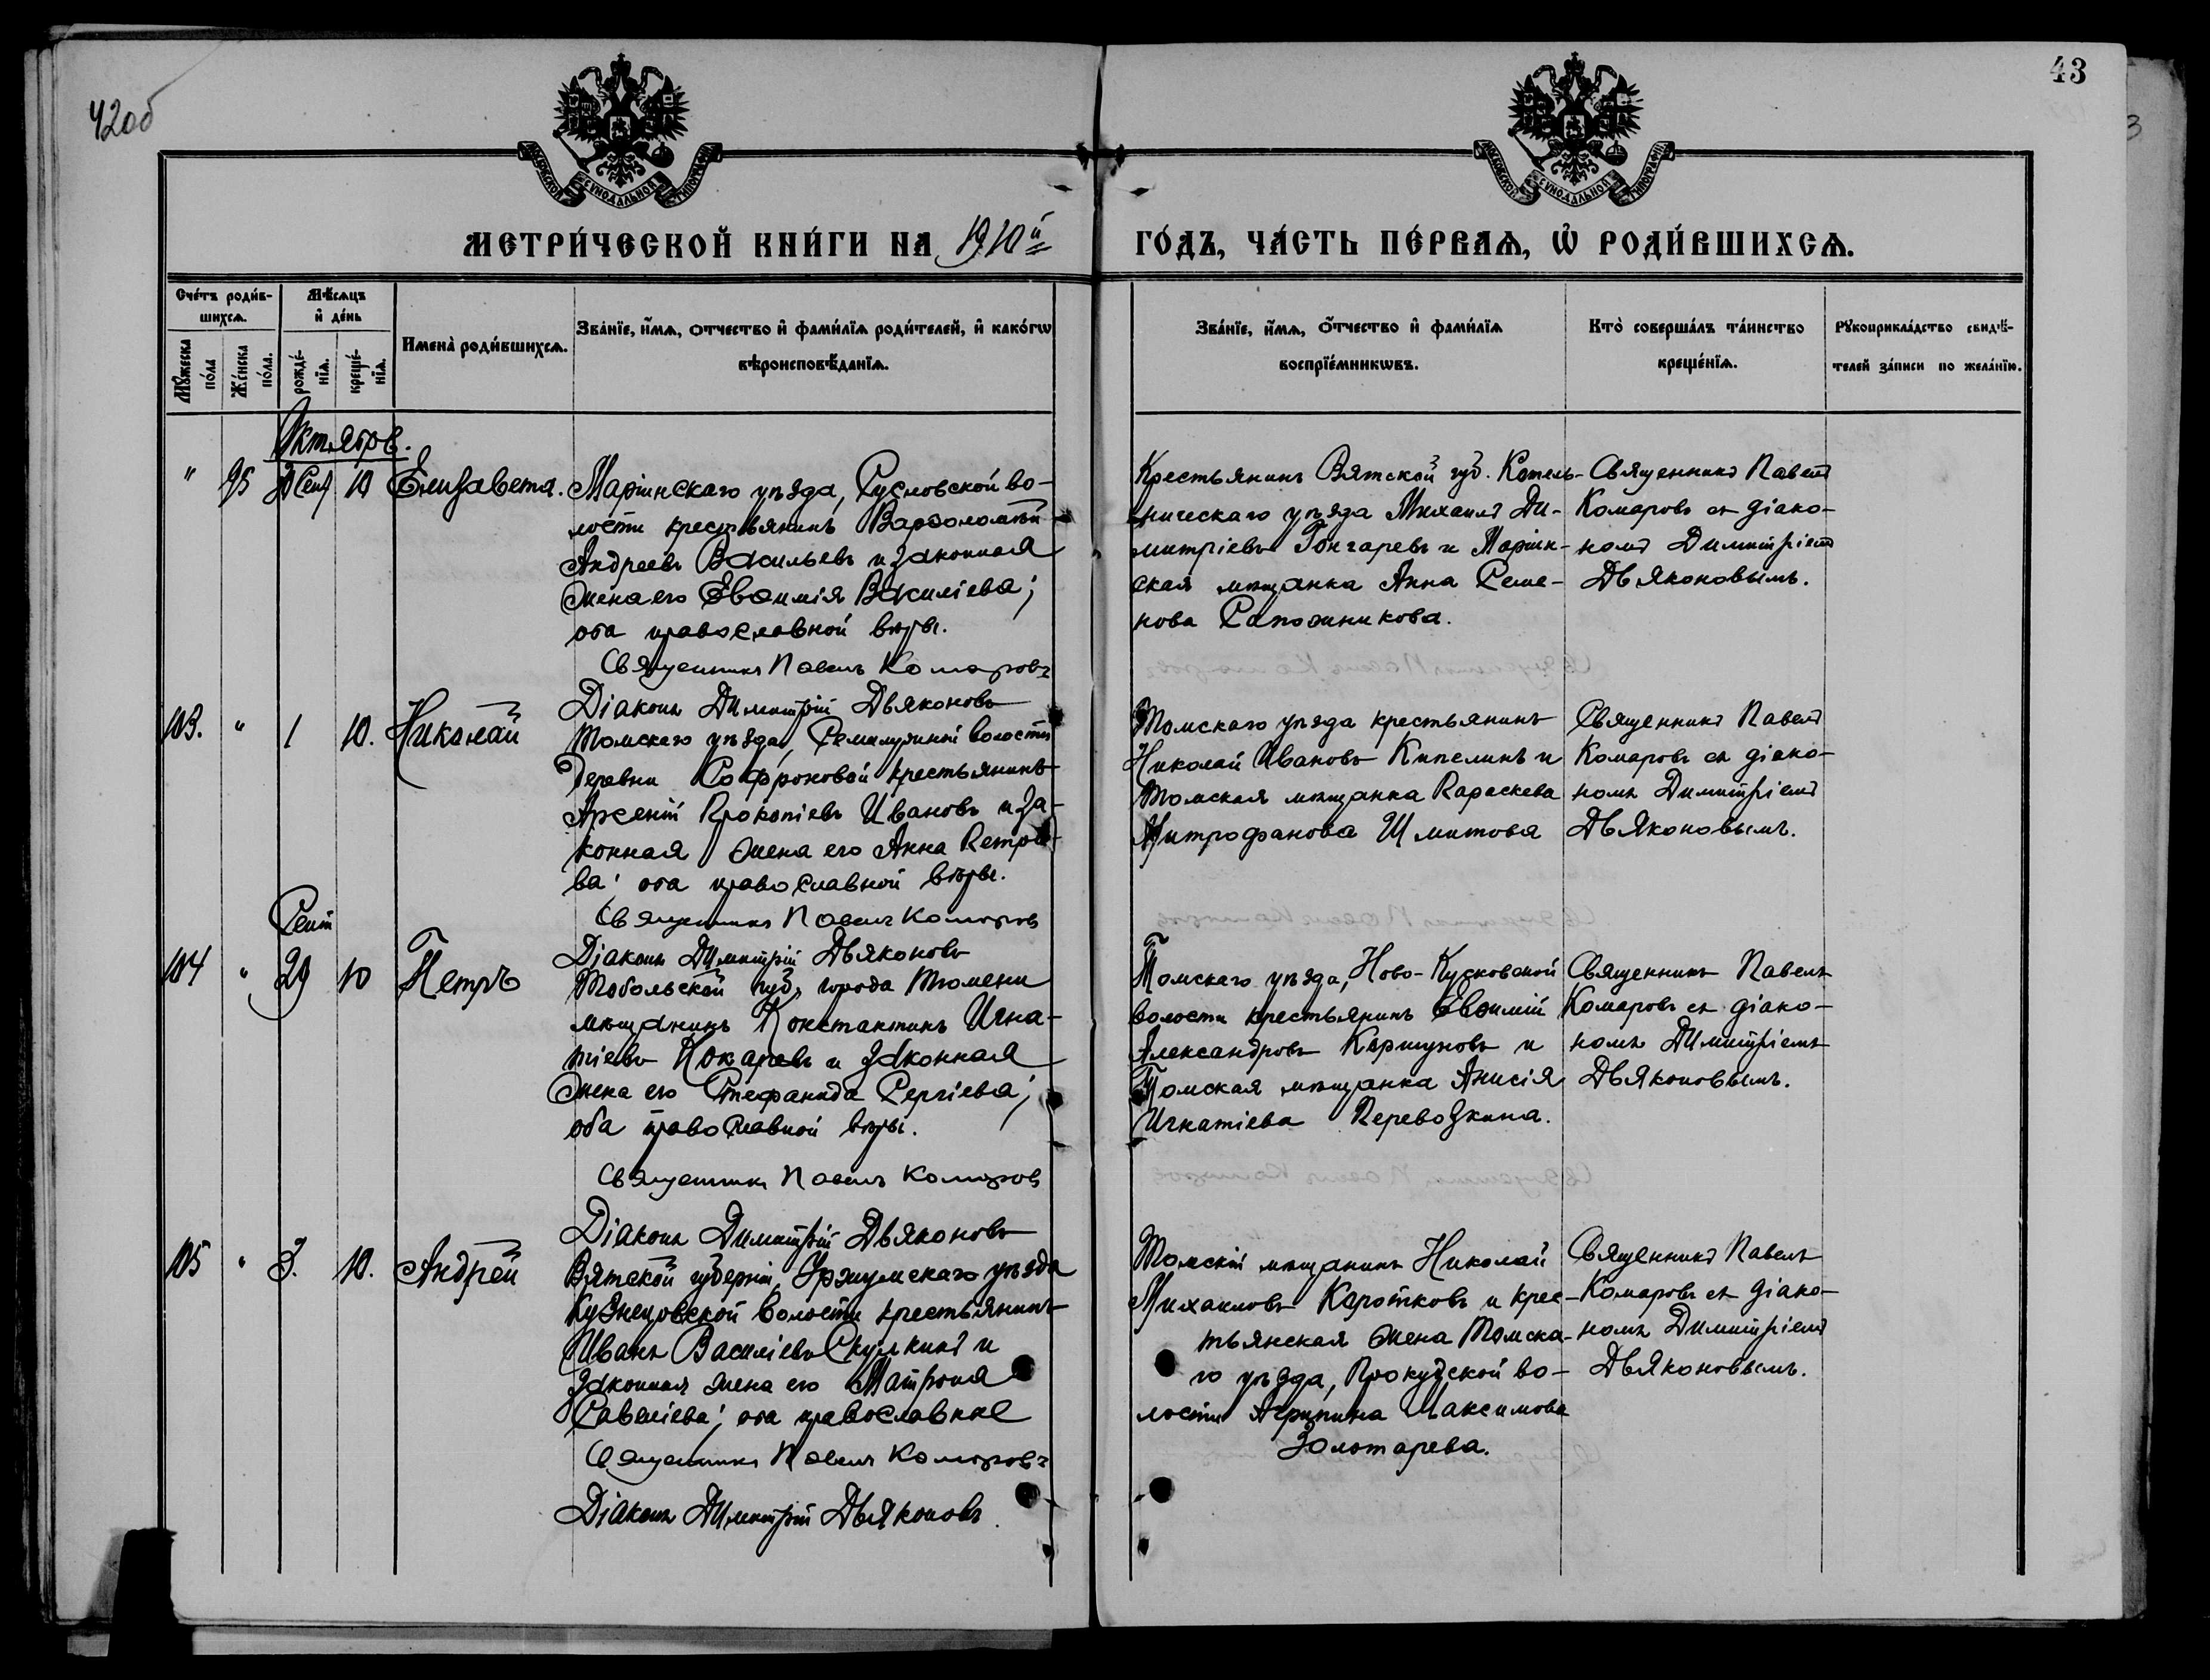 42об
43
МОСКОВСКОЙ СѴНОДАЛЬНОЙ ТИПОГРАФІИ
МОСКОВСКОЙ СѴНОДАЛЬНОЙ ТИПОГРАФІИ
МЕТРИ́ЧЕСКОЙ КНИ́ГИ НА 1910й ГО́ДЪ, ЧА́СТЬ ПЕ́РВАѦ, Ѡ҆ РОДИ́ВШИХСѦ.
Сче́тъ роди́в-
шихсѧ.
Мѣ́сѧцъ
и҆ де́нь
Мꙋ́жеска
по́ла
Же́нска
по́ла.
рожде́-
нїѧ.
креще́-
нїѧ.
Имена̀ роди́вшихсѧ.
Зва́нїе, и҆́мѧ, ѻ҆́тчество и҆ фами́лїѧ роди́телей, и҆ како́гѡ
вѣроисповѣ́данїѧ.
Зва́нїе, и҆́мѧ, ѻ҆́тчество и҆ фами́лїѧ
воспрїе́мникѡвъ.
Кто̀ соверша́лъ та́инство
креще́нїѧ.
Рꙋкоприкла́дство свидѣ́-
телей за́писи по жела́нїю.
Октябрь.
" 95 10 Елизавета.
Маріинскаго уѣзда, Сусловской во-
лости крестьянинъ Варѳоломѣй
Андреевъ Васильевъ и законная
жена его Евѳимія Василіева;
оба православной вѣры.
Священникъ Павелъ Комаровъ
Діаконъ Димитрій Дьяконовъ
Крестьянинъ Вятской губ. Котель-
ническаго уѣзда Михаилъ Ди-
митріевъ Гончаревъ и Маріин-
ская мѣщанка Анна Семе-
нова Сапожникова.
Священникъ Павелъ
Комаровъ съ діако-
номъ Димитріемъ
Дьяконовымъ.
103. " 1 10. Николай
Томскаго уѣзда, Семилужной волости
деревни Софроновой крестьянинъ
Арсеній Прокопіевъ Ивановъ и за-
конная жена его Анна Петро-
ва; оба православной вѣры.
Священникъ Павелъ Комаровъ
Діаконъ Димитрій Дьяконовъ
Томскаго уѣзда крестьянинъ
Николай Ивановъ Кипелинъ и
Томская мѣщанка Параскева
Митрофанова Шмитова
Священникъ Павелъ
Комаровъ съ діако-
номъ Димитріемъ
Дьяконовымъ.
Сент
104 " 29 10 Петръ
Тобольской губ. города Тюмени
мѣщанинъ Константинъ Игна-
тіевъ Кокаревъ и законная
жена его Стефанида Сергіева;
оба православной вѣры.
Священникъ Павелъ Комаровъ
Діаконъ Димитрій Дьяконовъ
Томскаго уѣзда, Ново-Кусковской
волости крестьянинъ Евѳимій
Александровъ Коршуновъ и
Томская мѣщанка Анисія
Игнатіева Перевозкина.
Священникъ Павелъ
Комаровъ съ діако-
номъ Димитріемъ
Дьяконовымъ.
105 " 3. 10. Андрей
Вятской губерніи, Уржумскаго уѣзда
Кузнецовской волости крестьянинъ
Иванъ Василіевъ Скулкинъ и
законная жена его Матрона
Савеліева; оба православные
Священникъ Павелъ Комаровъ
Діаконъ Димитрій Дьяконовъ
Томскій мѣщанинъ Николай
Михаиловъ Коротковъ и крес-
тьянская жена Томска-
го уѣзда, Прокудской во-
лости Агрипина Максимова
Золотарева.
Священникъ Павелъ
Комаровъ съ діако-
номъ Димитріемъ
Дьяконовымъ.